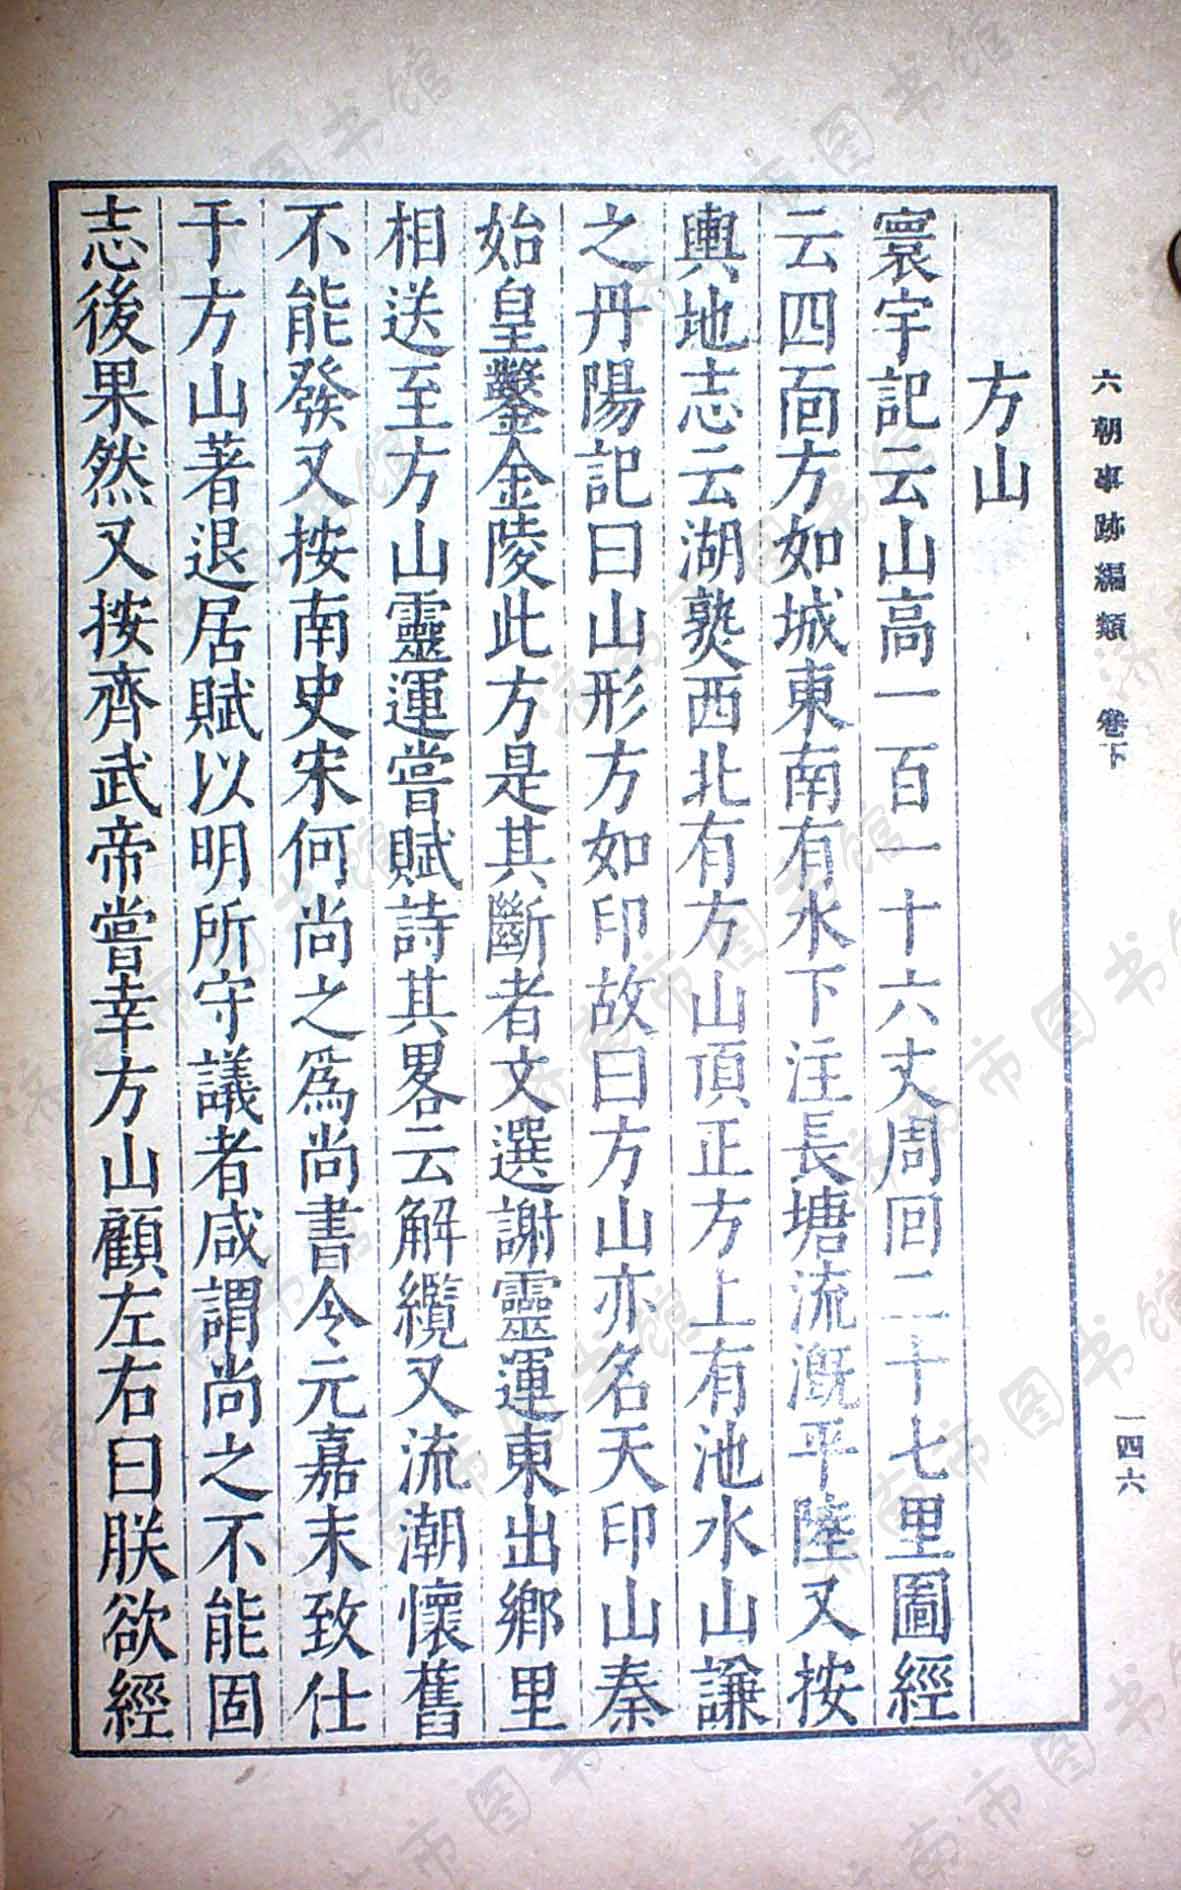 六朝事跡編類 卷下
一四六
方山
寰宇記云山高一百一十六丈周回二十七里圖經
云四面方如城東南有水下注長塘流溉平陸又按
輿地志云湖熟西北有方山頂正方上有池水山謙
之丹陽記曰山形方如印故曰方山亦名天印山秦
始皇鑿金陵此方是其斷者文選謝靈運東出鄉里
相送至方山靈運嘗賦詩其畧云解纜又流潮懷舊
不能發又按南史宋何尚之爲尚書令元嘉末致仕
于方山著退居賦以明所守議者咸謂尚之不能固
志後果然又按齊武帝嘗幸方山顧左右曰朕欲經
济南市图书馆